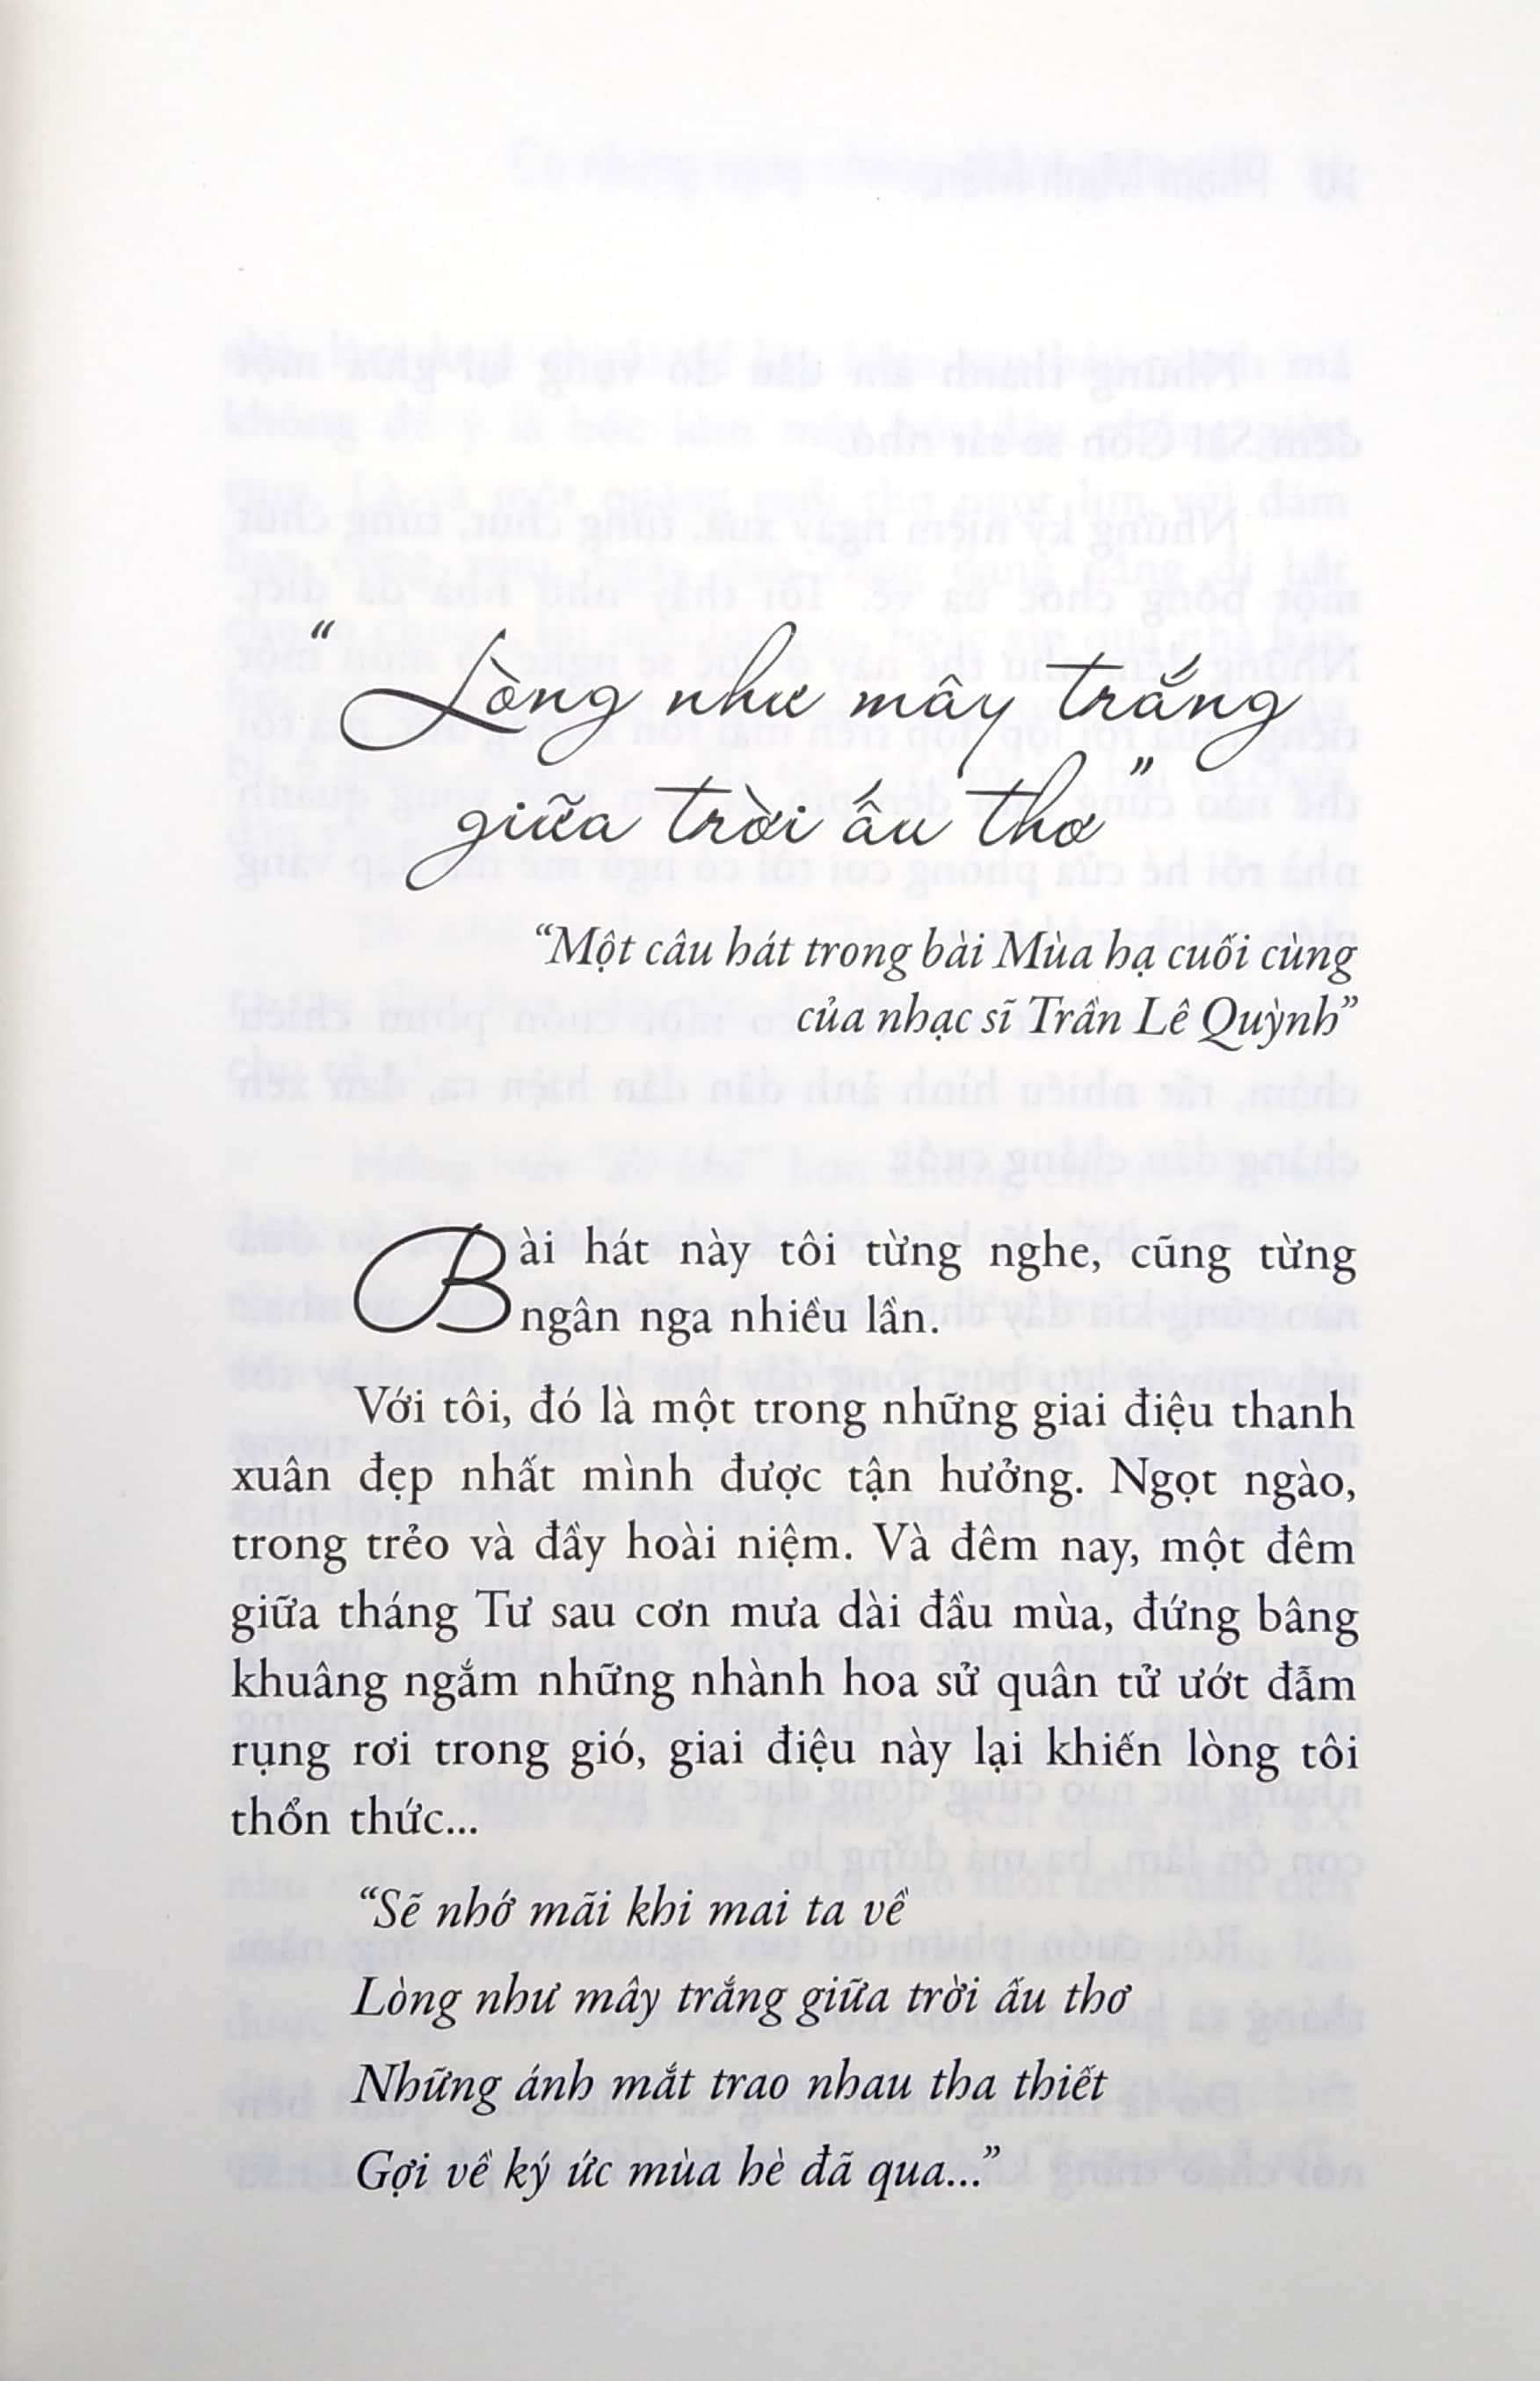 “Lòng như mây trắng
giữa trời ấu thơ”
“Một câu hát trong bài Mùa hạ cuối cùng
của nhạc sĩ Trần Lê Quỳnh”
Bài hát này tôi từng nghe, cũng từng
ngân nga nhiều lần.
Với tôi, đó là một trong những giai điệu thanh
xuân đẹp nhất mình được tận hưởng. Ngọt ngào,
trong trẻo và đầy hoài niệm. Và đêm nay, một đêm
giữa tháng Tư sau cơn mưa dài đầu mùa, đứng bâng
khuâng ngắm những nhành hoa sử quân tử ướt đẫm
rụng rơi trong gió, giai điệu này lại khiến lòng tôi
thổn thức...
“Sẽ nhớ mãi khi mai ta về
Lòng như mây trắng giữa trời ấu thơ
Những ánh mắt trao nhau tha thiết
Gợi về ký ức mùa hè đã qua...”